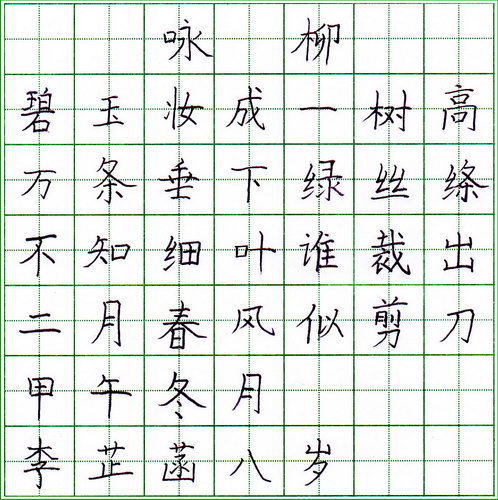 咏柳
碧玉妆成一树高
万条垂下绿丝绦
不知细叶谁裁出
二月春风似剪刀
甲午冬月
李芷菡八岁